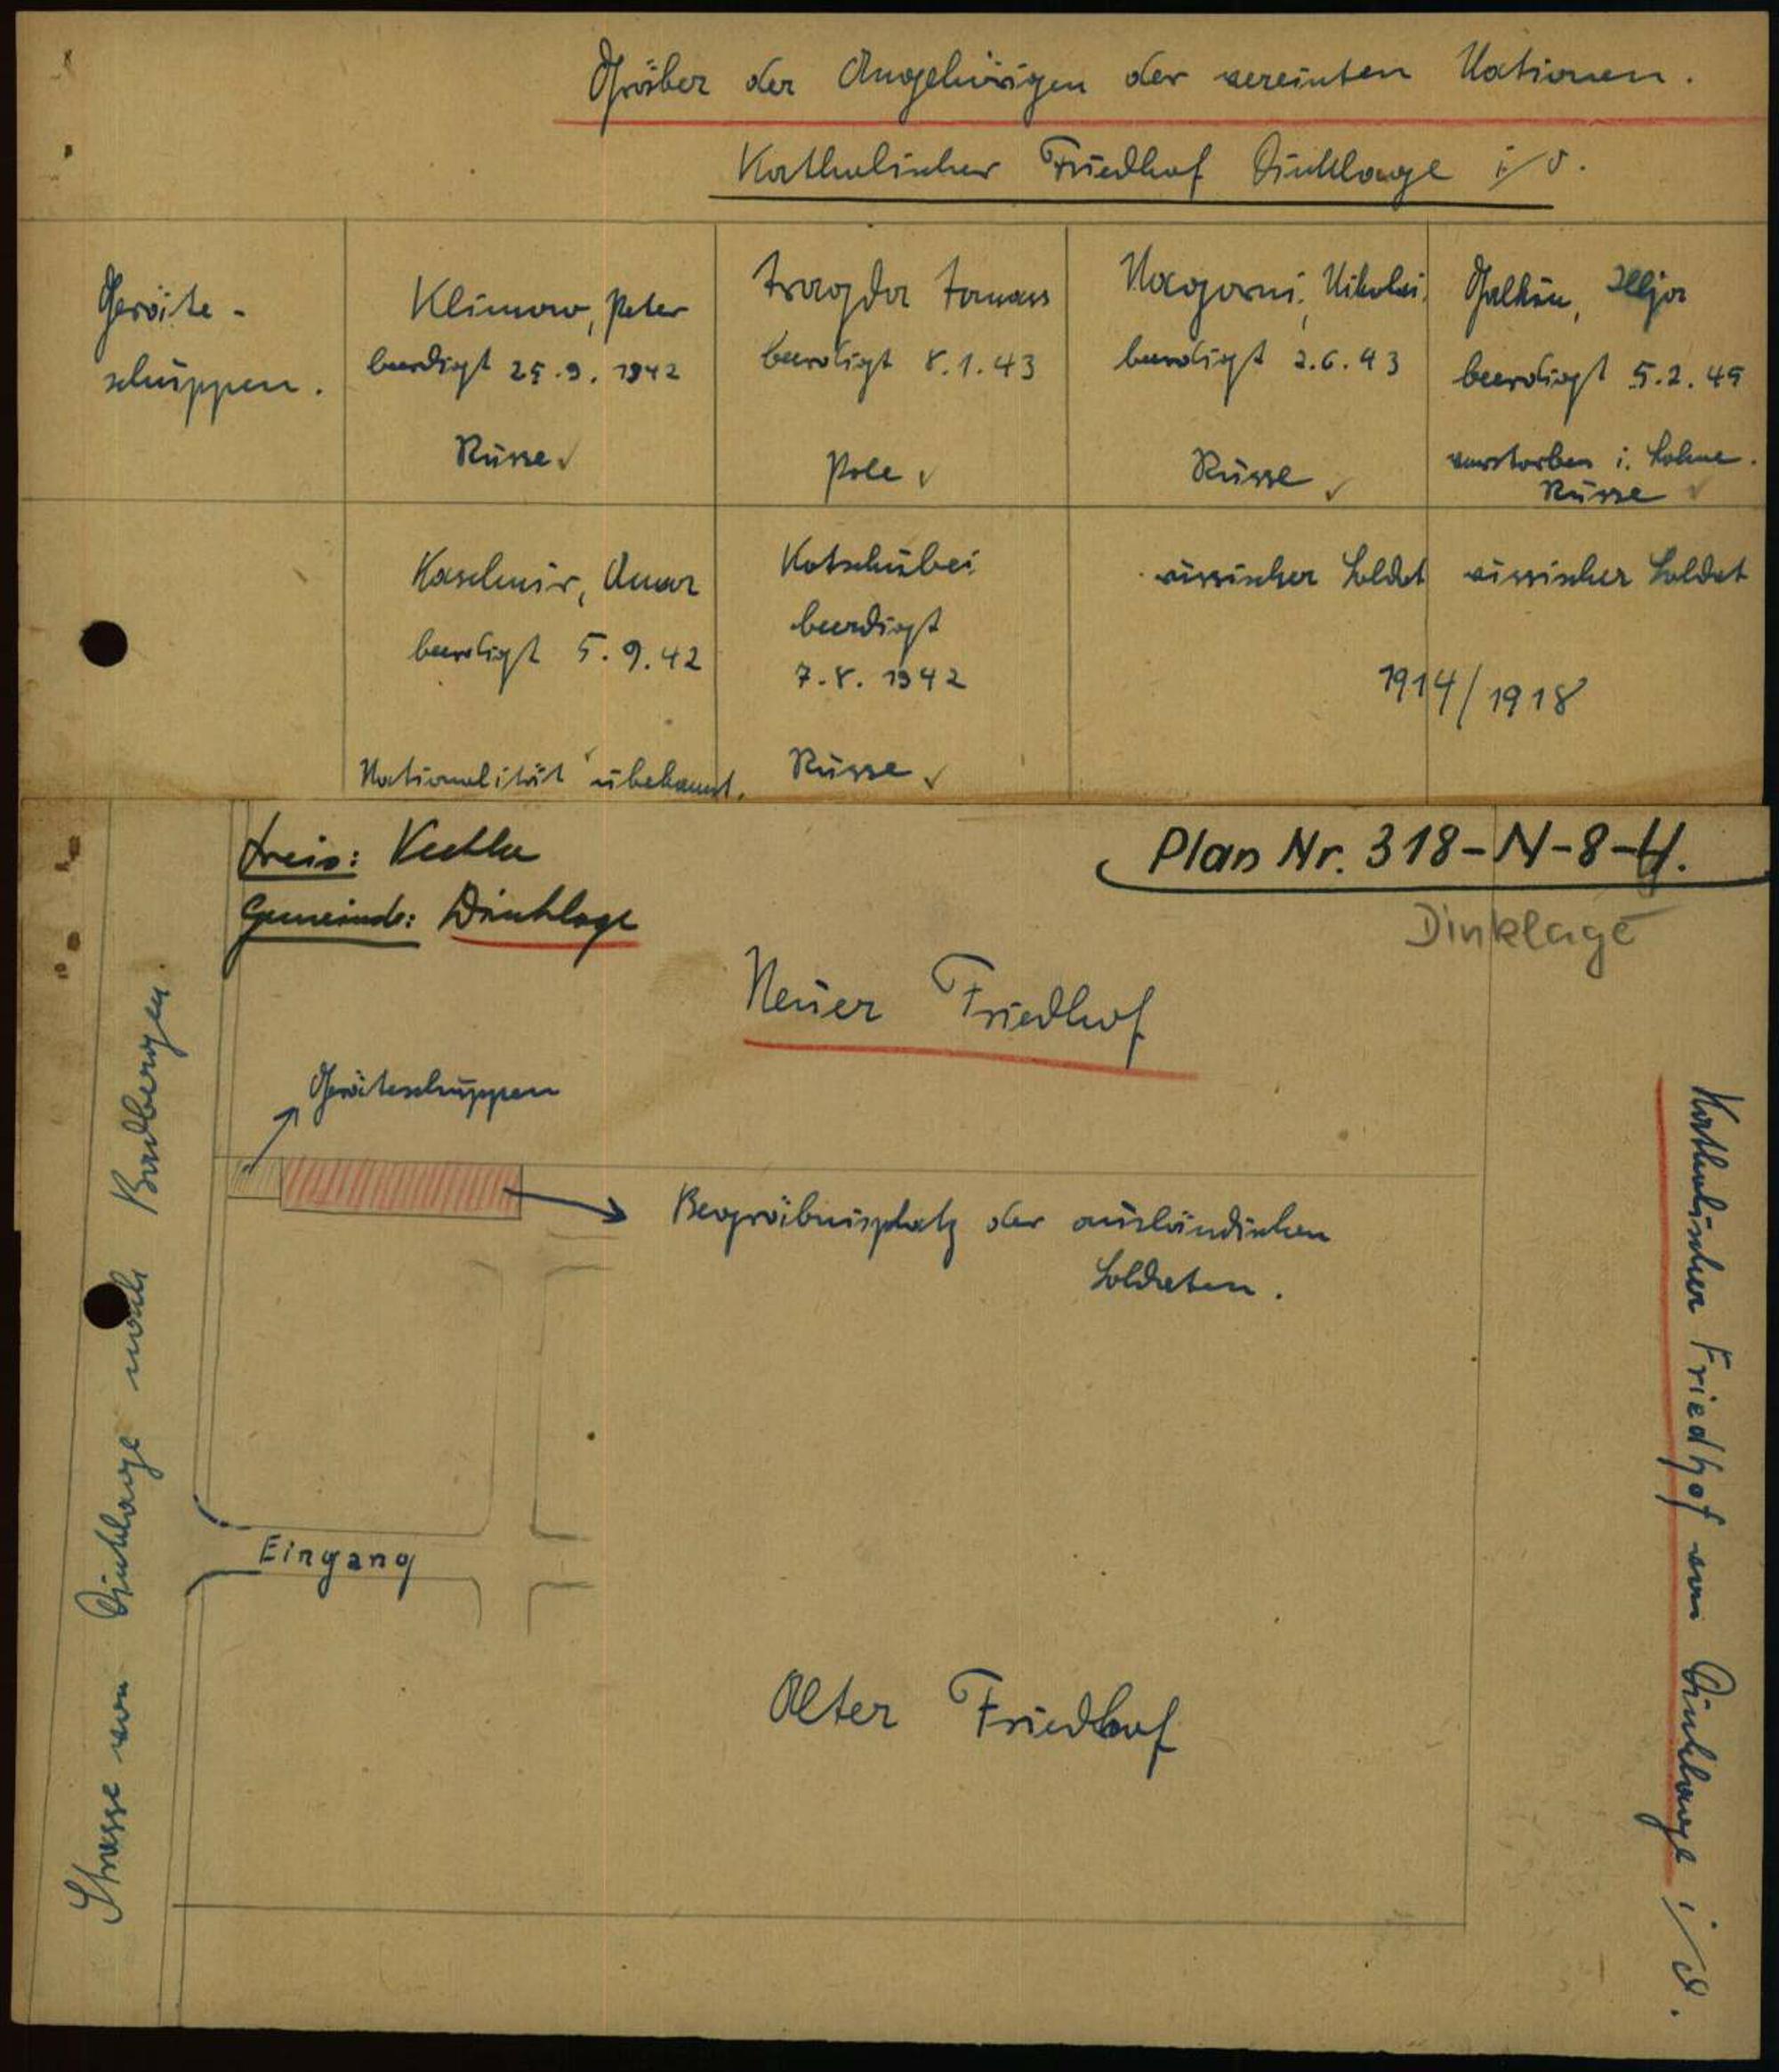 Gräber der Angehörigen der vereinten Nationen.
Katholischer Friedhof Dinklage i/O.
Geräte-
schuppen.
Klimow, Peter
beerdigt 25.9.1942
Russe
beerdigt 8.1.43
Pole
Nagorni, Nikolai
beerdigt 2.6.43
Russe
Galkin, Illja
beerdigt 5.2.45
verstorben i. Lohne.
Russe
Kaschmir, Omar
beerdigt 5.9.42
Nationalität ubekannt.
Kotschubei
beerdigt
7.8.1942
Russe
russischer Soldat
russischer Soldat
1914/1918
Kreis: Vechta
Gemeinde: Dinklage
Plan Nr. 318-N-8-4.
Dinklage
Neuer Friedhof
Geräteschuppen
Begräbnisplatz der ausländischen
Soldaten.
Eingang
Alter Friedhof
Strasse von Dinklage nach Badbergen.
Katholischer Friedhof von Dinklage i/O.